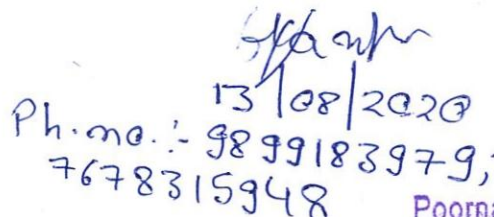 13/08/2020
Ph. no. :- 9899183979,
7678315948
Poorna